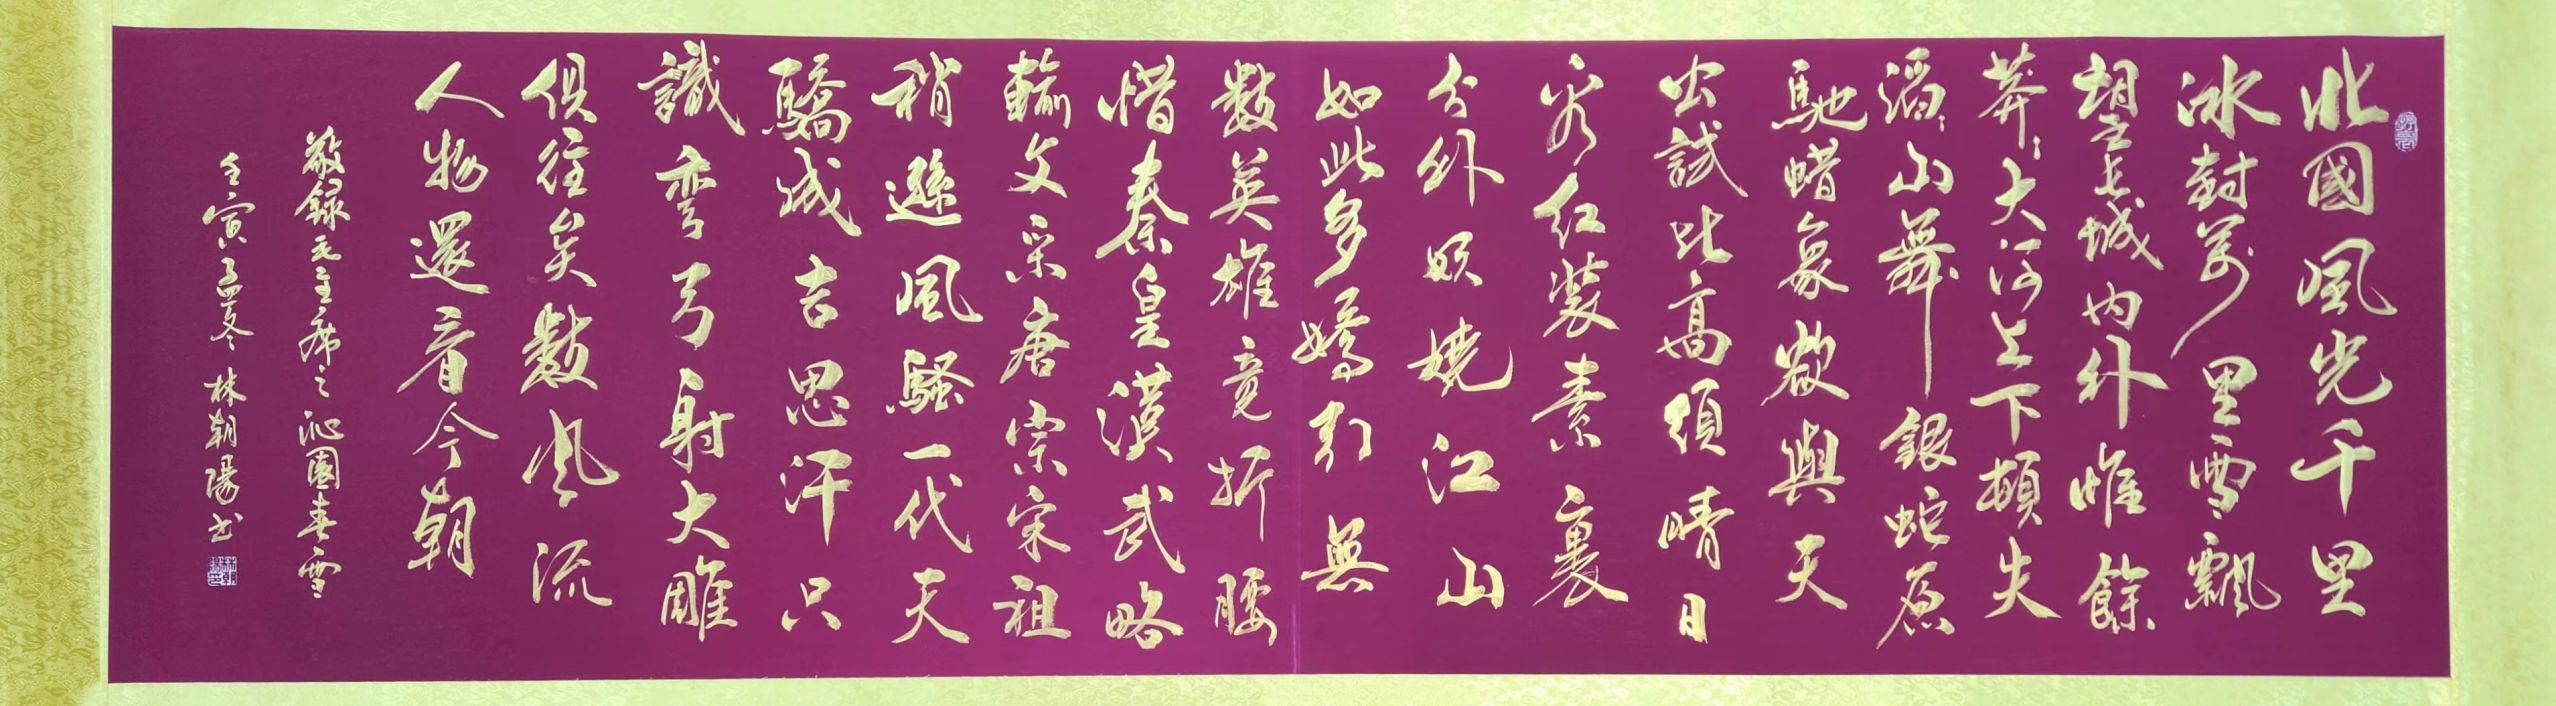 北國風光千里
冰封萬里雪飄
望長城内外惟餘
莽〻大河上下頓失
滔〻山舞銀蛇原
馳蠟象欲與天
公試比高須晴日
看红裝素裹
分外妖嬈江山
如此多嬌引無
數英雄竟折腰
惜秦皇漢武略
輸文采唐宗宋祖
稍遜風騷一代天
驕成吉思汗只
識彎弓射大雕
俱往矣數風流
人物還看今朝
敬録毛主席之沁園春雪
壬寅孟冬 林朝陽书